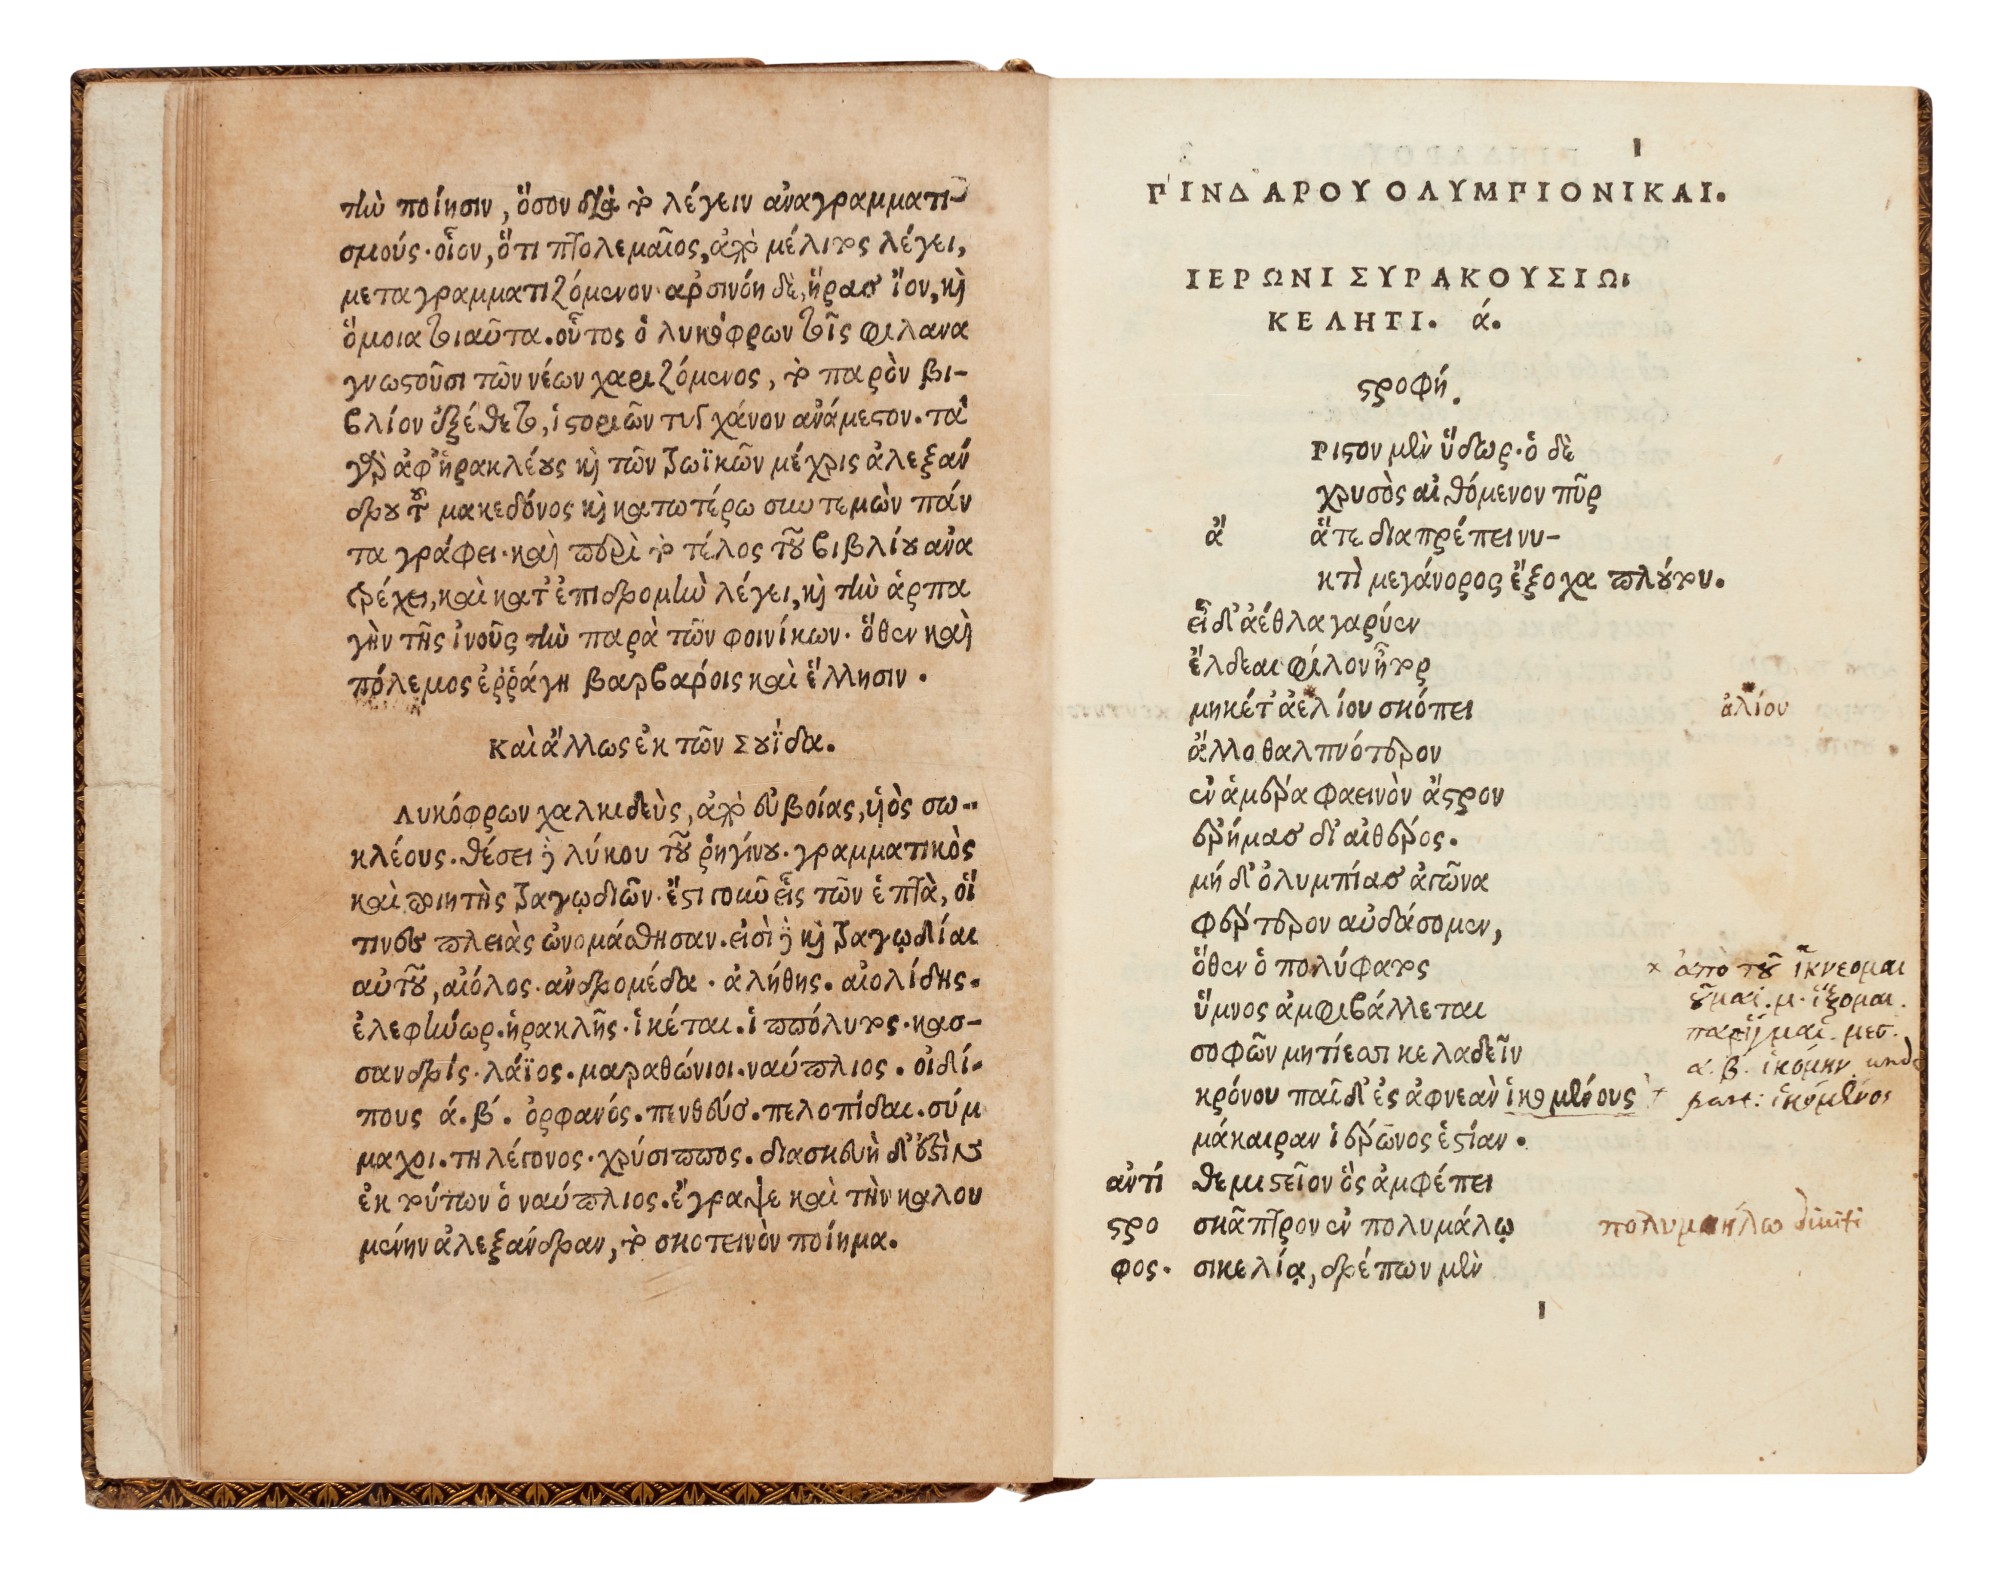 τὴν ποίησιν, ὅσον διὰ τὸ λέγειν ἀναγραμματι-
σμούς· οἷον, ὅτι πτολεμαῖος, ἀπὸ μέλιτος λέγει,
μεταγραμματιζόμενον· ἀρσινόη δὲ, ἥρας ἴον, κỳ
ὅμοια τοιαῦτα. οὗτος ὁ λυκόφρων τοῖς φιλανα
γνωστοῦσι τῶν νέων χαριζόμενος, τὸ παρὸν βι-
βλίον ἐξέθετο, ἱστοριῶν τυγχάνον ἀνάμεστον. τὰ
γὸ ἀφ' ἡρακλέους κỳ τῶν τρωϊκῶν μέχρις ἀλεξάν
δρου τοῦ μακεδόνος κỳ κατωτέρω συντεμὼν πάν
τα γράφει· καὶ περὶ τὸ τέλος τοῦ βιβλίου ἀνα
τρέχει, καὶ κατ' ἐπιδρομὴν λέγει, κỳ τὴν ἁρπα
γὴν τῆς ἰνοῦς τὴν παρὰ τῶν φοινίκων. ὅθεν καὶ
πόλεμος ἐῤῥάγη βαρβάροις καὶ ἕλλησιν.
Καὶ ἄλλως ἐκ τῶν Σουΐδα.
Λυκόφρων χαλκιδεὺς, ἀπὸ εὐβοίας, ὑὸς σω-
κλέους. θέσει δὲ λύκου τοῦ ῥηγίνου. γραμματικὸς
καὶ ποιητὴς τραγῳδιῶν. ἔστι γοῦν εἷς τῶν ἑπτὰ, οἵ
τινες πλειὰς ὠνομάσθησαν. εἰσὶ δὲ κỳ τραγῳδίαι
αὐτοῦ, αἰόλος. ἀνδρομέδα. ἀλήθης. αἰολίδης.
ἐλεφήνωρ. ἡρακλῆς. ἱκέται. ἱππόλυτος. κασ-
σανδρίς. λάϊος. μαραθώνιοι. ναύπλιος. οἰδί-
πους ά. β́. ὀρφανός. πενθεύς. πελοπίδαι. σύμ
μαχοι. τηλέγονος. χρύσιππος. διασκευὴ δ' ἐστὶν
ἐκ τούτων ὁ ναύπλιος. ἔγραψε καὶ τὴν καλου
μένην ἀλεξάνδραν, τὸ σκοτεινὸν ποίημα.
1
ΠΙΝΔΑΡΟΥ ΟΛΥΜΠΙΟΝΙΚΑΙ.
ΙΕΡΩΝΙ ΣΥΡΑΚΟΥΣΙΩι
ΚΕΛΗΤΙ. ά.
στροφή.
ΡΙστον μὲν ὕδωρ· ὁ δὲ
χρυσὸς αἰθόμενον πῦρ
ἄ ἅτε διαπρέπει νυ-
κτὶ μεγάνορος ἔξοχα πλούτου.
εἰ δ' ἀέθλα γαρύεν
ἔλδεαι φίλον ἦτορ
μηκέτ' ἀελίου σκόπει ἁλίου
ἄλλο θαλπνότερον
ἐν ἁμέρᾳ φαεινὸν ἄστρον
ἐρήμας δι' αἰθέρος.
μή δ' ὀλυμπίας ἀγῶνα
φέρτερον αὐδάσομεν,
ὅθεν ὁ πολύφατος × ἀπὸ τοῦ ἵκνεομαι
ὕμνος ἀμφιβάλλεται οῦμαι. μ. ἵξομαι.
σοφῶν μητίεσσι κελαδεῖν μεσ.
ά. β́. ἱκόμην unde
κρόνου παῖδ' ἐς ἀφνεὰν ἱκομένους part: ἱκόμενος
μάκαιραν ἱέρωνος ἑστίαν.
ἀντί θεμιστεῖον ὃς ἀμφέπει
στρο σκᾶπτρον ἐν πολυμάλῳ πολυμήλῳ
φος. σικελίᾳ, δρέπων μὲν
1